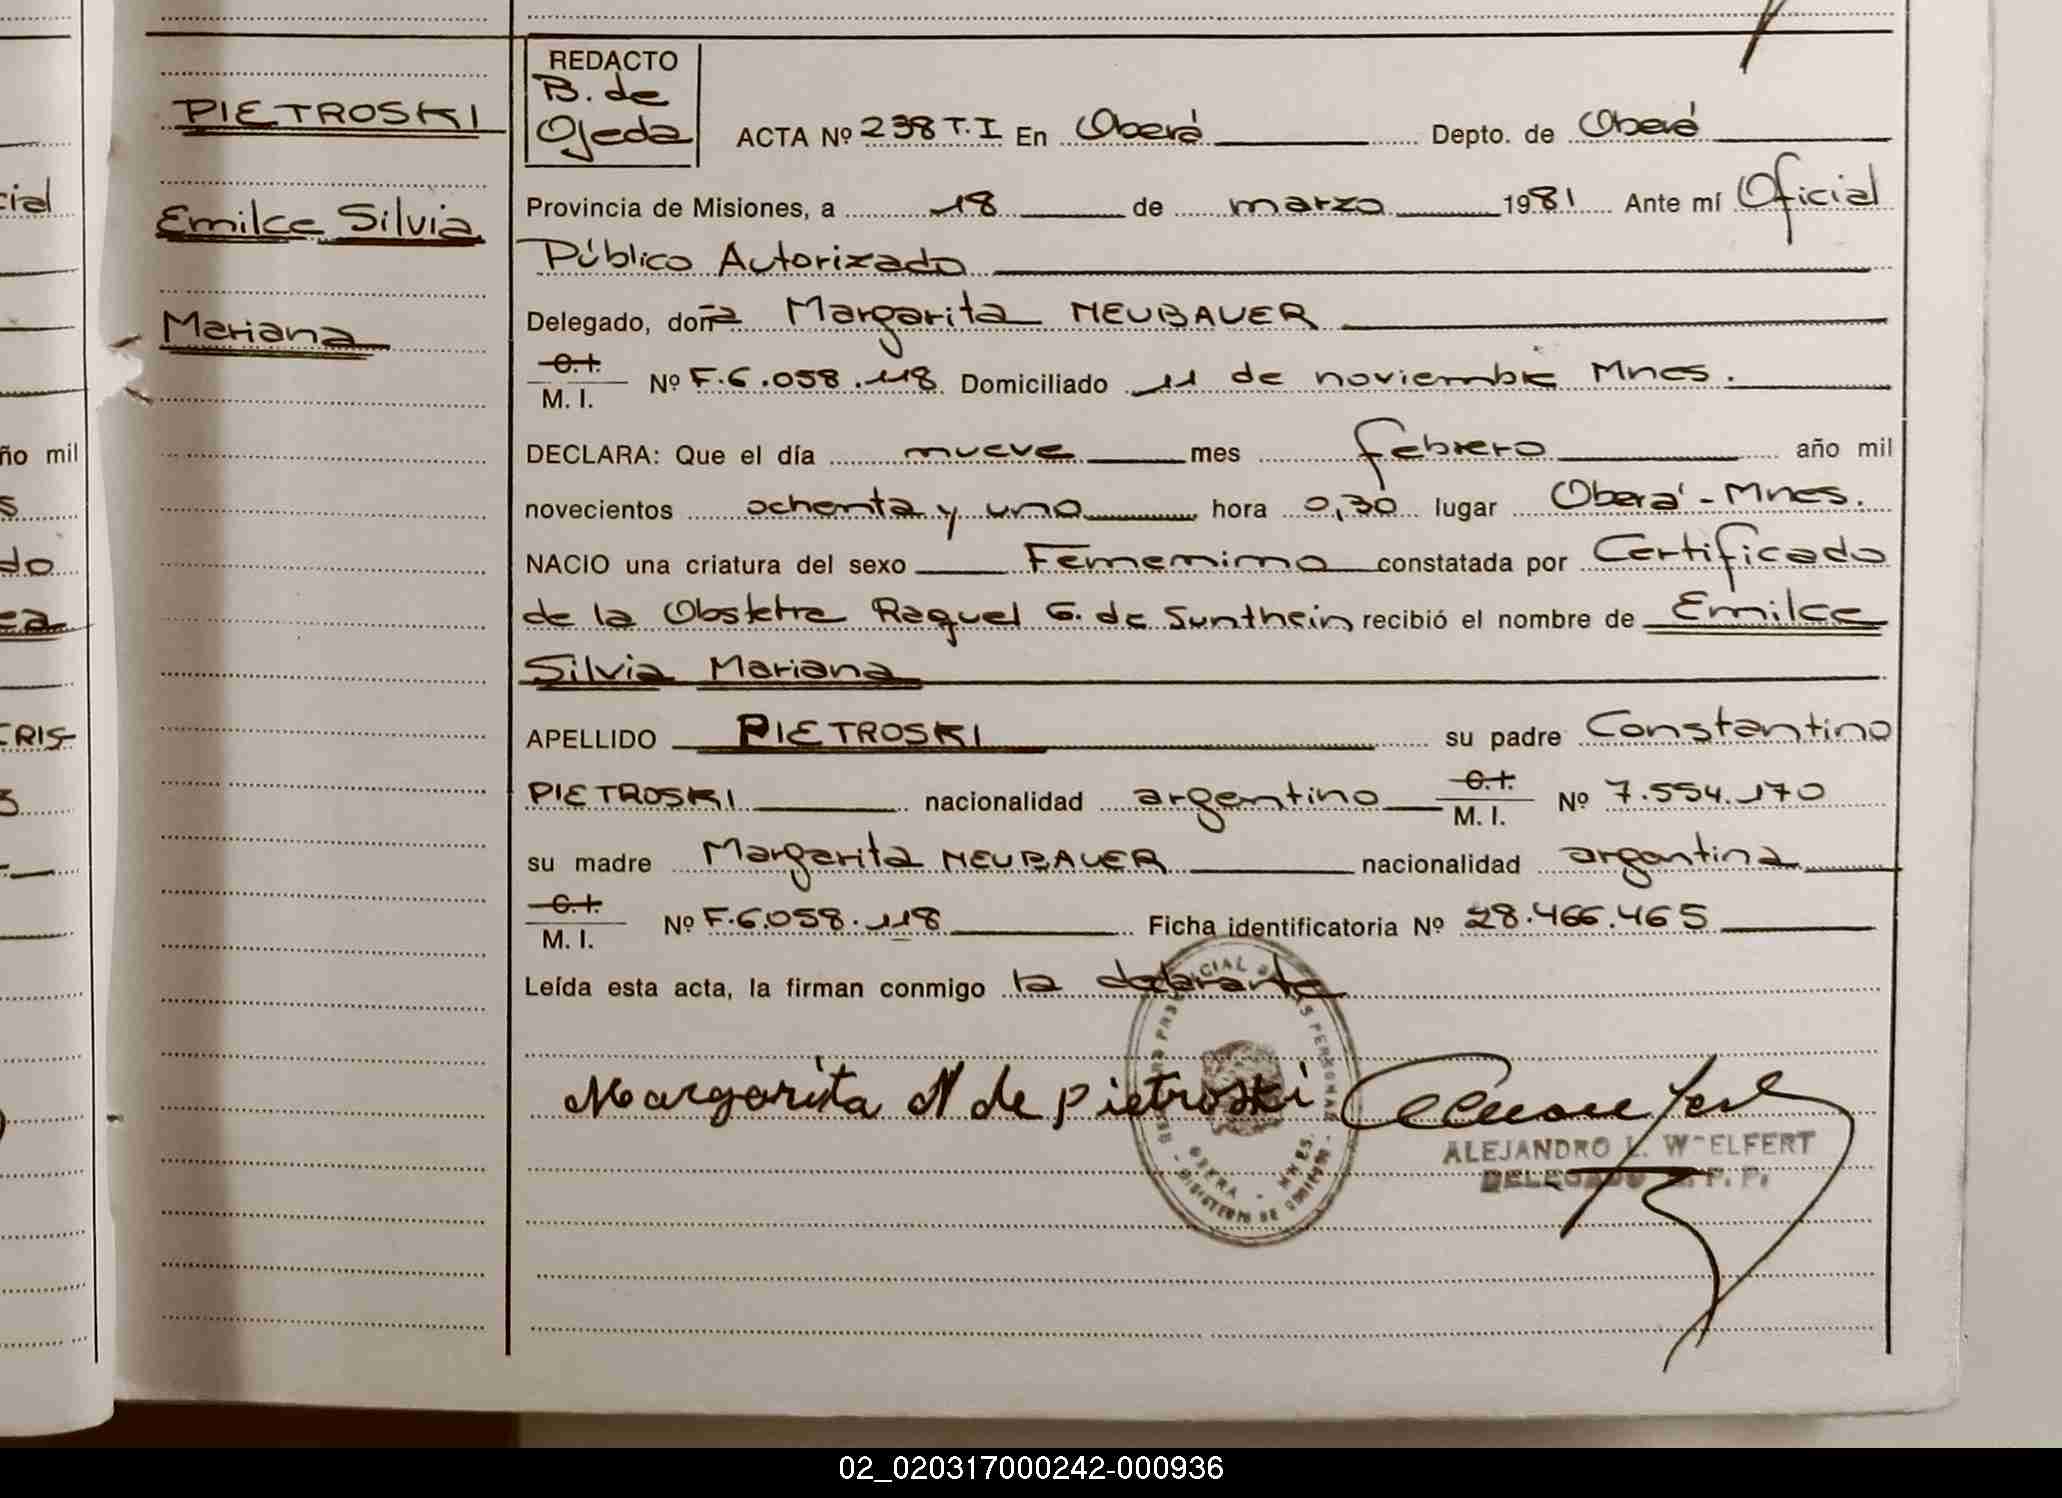 PIETROSKI
Emilce Silvia
Mariana
REDACTO
B. de
Ojeda
ACTA Nº 238 T.I En Oberá Depto. de Oberá
Provincia de Misiones, a 18 de marzo 1981 Ante mí Oficial
Público Autorizado
Delegado, doña Margarita NEUBAUER
C.I.
M. I. Nº F.6.058.118 Domiciliado 11 de noviembre Mnes.
DECLARA: Que el día nueve mes febrero año mil
novecientos ochenta y uno hora 0,30 lugar Oberá - Mnes.
NACIO una criatura del sexo Femenino constatada por Certificado
de la Obstetra Raquel G. de Sunthein recibió el nombre de Emilce
Silvia Mariana
APELLIDO PIETROSKI su padre Constantino
PIETROSKI nacionalidad argentino C.I. M. I. Nº 7.554.170
su madre Margarita NEUBAUER nacionalidad argentina
C.I.
M. I. Nº F.6.058.118 Ficha identificatoria Nº 28.466.465
Leída esta acta, la firman conmigo la declarante
Margarita N de pietroski
ALEJANDRO L. WELFERT
DELEGADO R. P. P.
OBERA - MNES.
MINISTERIO DE GOBIERNO
cial
ño mil
s
do
ea
CRIS-
02_020317000242-000936